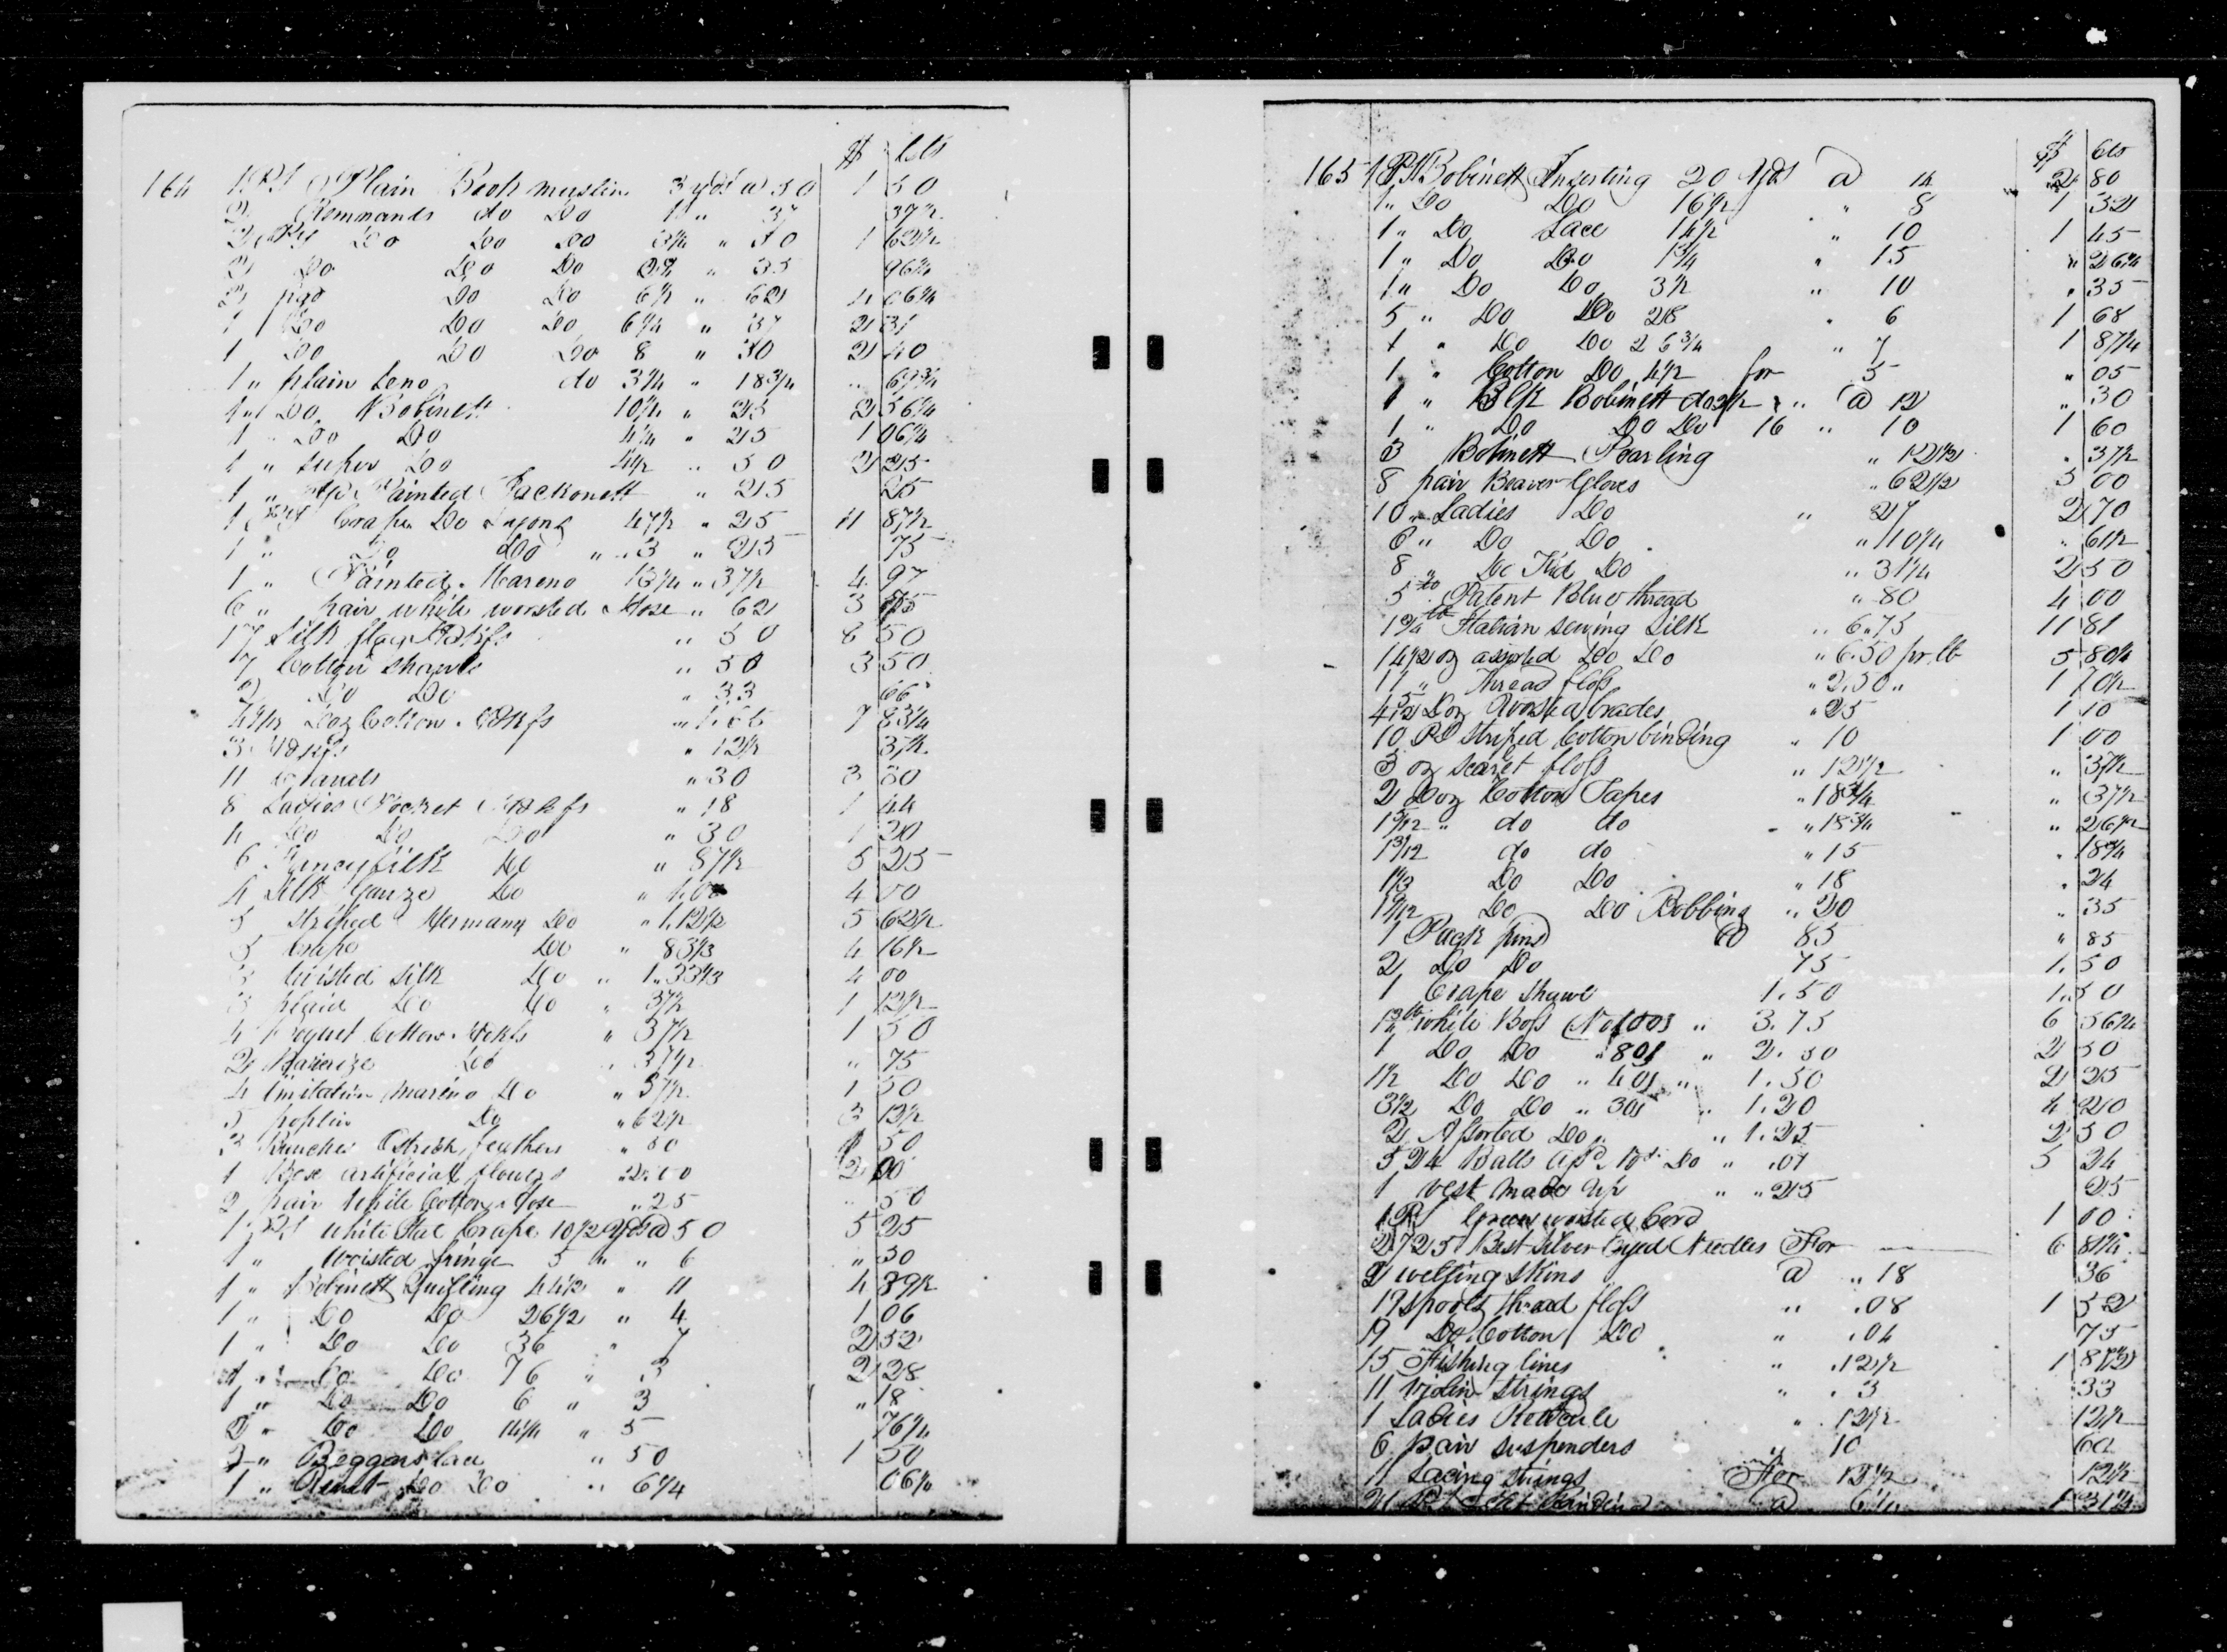 $ Cts
164 1 Ps Plain Book muslin 3 yds a 50 1 50
2 Remnants do Do 1 " 37 37½
2 Ps Do Do Do 3¼ " 50 1 62½
2 Do Do Do 2¾ " 35 96¼
2 pcs Do Do 6½ " 62 4 06¼
1 Do Do Do 6¼ " 37 2 31
1 Do Do Do 8 " 30 2 40
1 " plain Leno do 3¾ " 18¾ " 67¾
1 " Do Bobinett 10¼ " 25 2 56¼
1 " Do Do 4¼ " 25 1 06¼
1 " super Do 4½ " 50 2 25
1 " Painted Jackonett " 25 25
1 Ps Crape Do 47½ " 25 11 87½
1 " Do Do " 3 " 25 75
1 " Painted Mareno 13¼ " 37½ 4 97
6 " pair white worsted Hose " 62 3 75
17 Silk flag Hdkfs " 50 8 50
7 Cotton Shawls " 50 3 50
2 Do Do " 33 66
Doz Cotton Hdkfs 7 83¼
3 Hdkfs " 12½ 37½
11 " 30 3 30
8 Ladies Pocket Hdkfs " 18 1 44
4 Do Do Do " 30 1 20
6 Fancy silk Do " 87½ 5 25
4 Silk Gauze Do " 1.00 4 00
5 striped Do " 1.12½ 5 62½
5 Crape Do " 83⅓ 4 16½
3 twisted Silk Do " 1.33⅓ 4 00
3 plaid Do Do " 37½ 1 12½
4 Cotton Hdkfs " 37½ 1 50
2 Do " 37½ " 75
4 imitation marino Do " 37½ 1 50
5 poplin Do " 62½ 3 12½
3 Bunches Ostrich feathers " 50 1 50
1 Box artificial flowers " 2.00 2 00
2 pair White Cotton Hose " 25 " 50
1 Ps white Ital Crape 10½ Yds a 50 5 25
1 " Worsted fringe 5 " " 6 " 30
1 " Bobinett Quilling 44½ " 11 4 89½
1 " Do Do 26½ " 4 1 06
1 " Do Do 36 " 7 2 52
1 " Do Do 76 " 3 2 28
1 " Do Do 6 " 3 " 18
2 " Do Do 14¼ " 5 76¼
3 " Beggars lace " 50 1 50
1 " Do Do " 6¼ 06¼
$ Cts
165 1 Ps Bobinett Inserting 20 Yds a 14 2 80
1 " Do Do 16½ " 8 1 32
1 " Do Lace 14½ " 10 1 45
1 " Do Do 1¾ " 15 " 26¼
1 " Do Do 3½ " 10 " 35
5 " Do Do 28 " 6 1 68
1 " Do Do 26¾ " 7 1 87¼
1 " Cotton Do 4½ for 5 " 05
1 " Blk Bobinett do 2½ " a 12 " 30
1 " Do Do Do 16 " 10 1 60
3 Bobinett Pearling " 12½ " 37½
8 pair Beaver Gloves " 62½ 5 00
10 " Ladies Do " 27 2 70
6 " Do Do " 10¼ " 61½
8 " Do Kid Do " 31¼ 2 50
5 lb Patent Blue thread " 80 4 00
1¾ lb Italian sewing Silk " 6.75 11 81
14½ oz assorted Do Do " 6.50 pr lb 5 80¼
11 " Thread floss " 2.50 " 1 70½
Doz Worsted brades " 25 1 10
10 Ps striped Cotton binding " 10 1 00
3 oz scarlet floss " 12½ " 37½
2 Doz Cotton Tapes " 18¾ " 37½
1 5/12 " do do " 18¾ " 26½
1 3/12 do do " 15 " 18¾
1⅓ Do Do " 18 " 24
1 9/12 Do Do Bobbing " 20 " 35
1 Pack pins a 85 " 85
2 Do Do 75 1 50
1 Crape Shawl 1.50 1 50
1¾ lb white Boss " 3.75 6 56¼
1 Do Do " 801 " 2.50 2 50
1½ Do Do " 401 " 1.50 2 25
3½ Do Do " 301 " 1.20 4 20
2 Assorted Do " " 1.25 2 50
524 Balls Do " .01 5 24
1 vest made up " " 25 25
1 Ps Green worsted Cord 1 00
2725 Best Silver Eyed Needles For 6 81¼
2 welting Skins a " 18 36
19 spools thread floss " .08 1 52
19 Do Cotton Do " .04 75
15 Fishing lines " .12½ 1 87½
11 Violin Strings " .3 33
1 Ladies Reticule " .12½ 12½
6 pair suspenders " 10 60
11 Lacing strings For 12½ 12½
21 a 6¼ 1 31¼